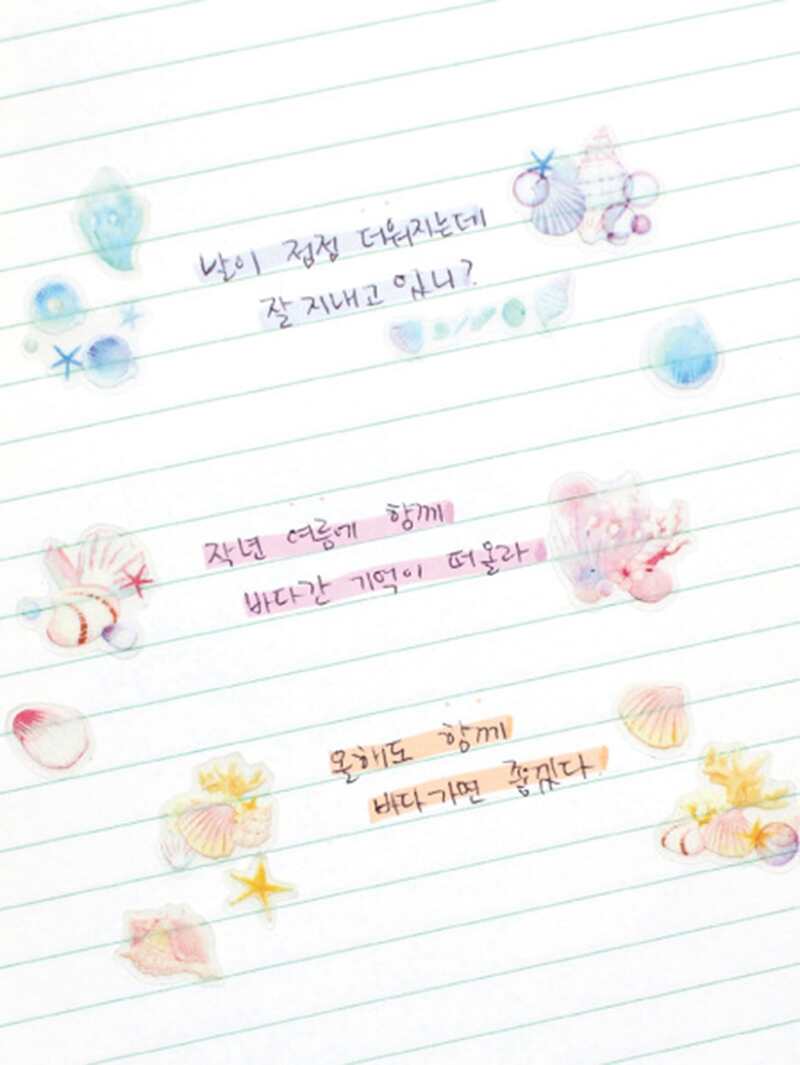 날이 점점 더워지는데
잘 지내고 있니?
작년 여름에 함께
바다간 기억이 떠올라
올해도 함께
바다가면 좋겠다.